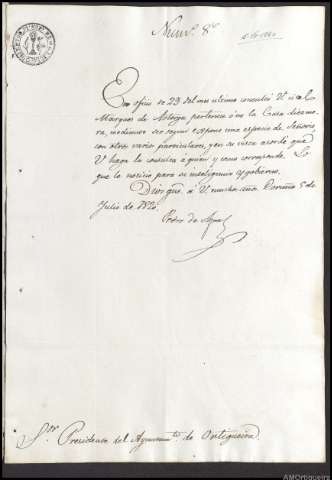 Num.º 8º
Con oficio de 23 del mes ultimo consultó V. si el
Marques de Astorga pertenece á na la Casa
ra, mediante segun expone una especie de Señorio
con otros varios particulares, y en su vista acordó que
V haga la consulta á quien y como corresponda. Lo
que le noticio para su inteligencia y gobierno.
Dios gue. á V. muchos años. Coruña 5 de
Julio de 1820.
Pedro de
Sor. Presidente del Ayuntamto. de Ortigueira.
AMOrtigueira